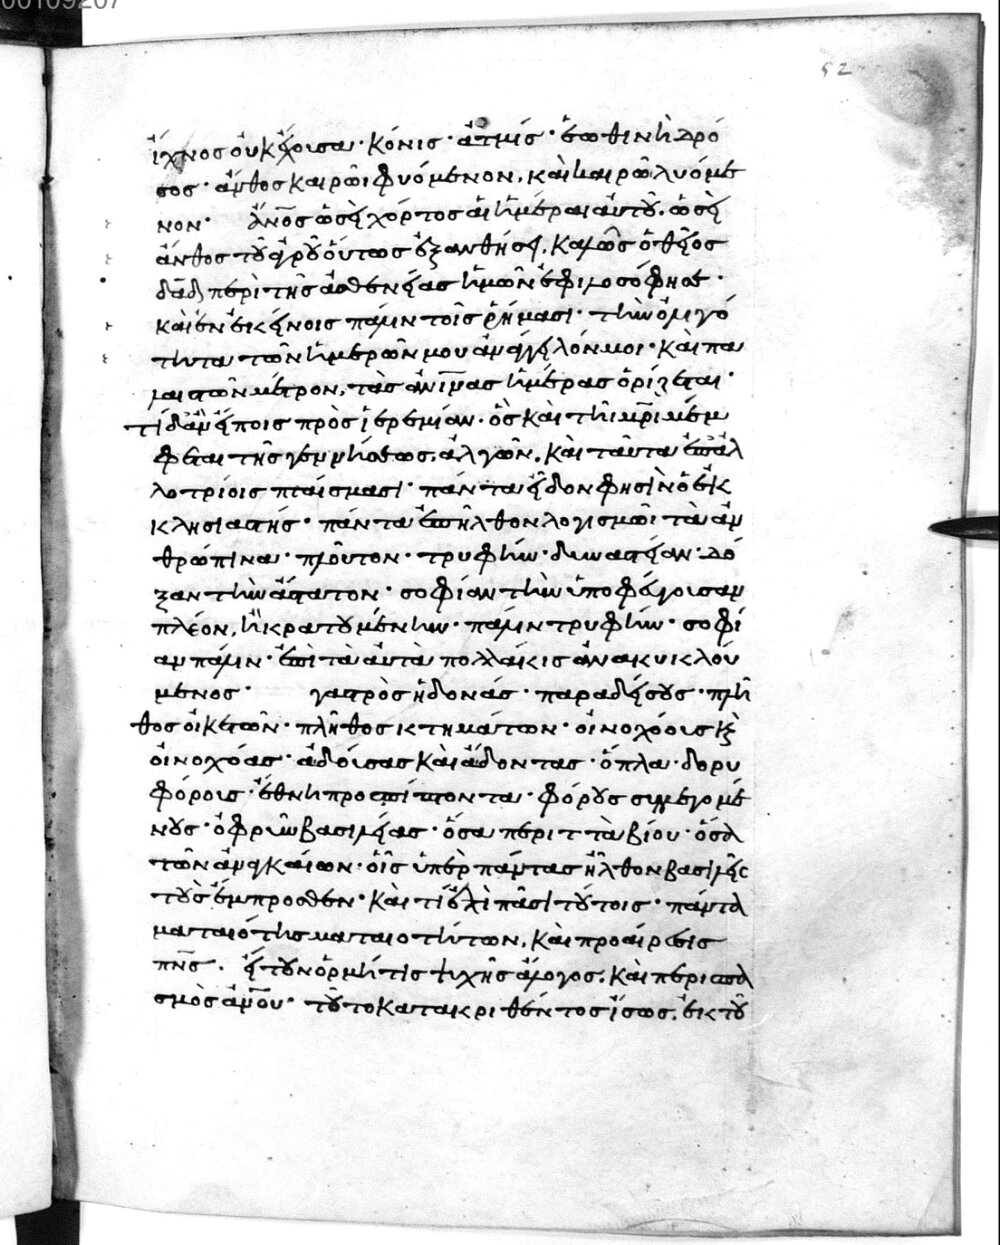 00109207
52
ἴχνος οὐκ ἔχουσα· κόνις· ἀτμίς· ἑωθινὴ δρό
σος· ἄνθος καιρῶι φυόμενον, καὶ καιρῶι λυόμε
νον· ἄνος ὡσεὶ χόρτος αἱ ἡμέραι αὐτοῦ. ὡσεὶ
ἄνθος τοῦ ἀγροῦ οὕτως ἐξανθήσει. καλῶς ὁ θεῖος
δαδ περὶ τῆς ἀσθενείας ἡμῶν ἐφιλοσόφησε·
καὶ ἐν ἐκείνοις πάλιν τοῖς ῥήμασι· τὴν ὀλιγό
τητα τῶν ἡμερῶν μου ἀνάγγειλόν μοι· καὶ πα
λαιστῶν μέτρον, τὰς ἀνίνας ἡμέρας ὁρίζεται·
τί δἂν εἴποις πρὸς ἱερεμίαν. ὃς καὶ τῆι μρὶ μέμ
φεται τῆς γεννήσεως, ἀλγῶν, καὶ ταῦτα ἐπ ἀλ
λοτρίοις πταίσμασι· πάντα εἶδον φησὶν ὁ ἐκ
κλησιαστής· πάντα ἐπῆλθον λογισμῶι τὰ ἀν
θρώπινα· πλοῦτον· τρυφήν· δυναστείαν· δό
ξαν τὴν ἄστατον· σοφίαν τὴν ὑποφεύγουσαν
πλέον, ἢ κρατουμένην· πάλιν τρυφήν· σοφί
αν πάλιν· ἐπὶ τὰ αὐτὰ πολλάκις ἀνακυκλού
μενος· γαστρὸς ἡδονάς· παραδείσους· πλῆ
θος οἰκετῶν· πλῆθος κτημάτων· οἰνοχόους καὶ
οἰνοχόας· ἀδούσας καὶ ἄδοντας· ὅπλα· δορυ
φόρους· ἔθνη προσπίπτοντα· φόρους συλλεγομέ
νους· ὀφρὺν βασιλείας· ὅσα περιττὰ βίου· ὅσα
τῶν ἀναγκαίων· οἷς ὑπὲρ πάντας ἦλθον βασιλεῖς
τοὺς ἔμπροσθεν· καὶ τί ἐπὶ πᾶσι τούτοις· πάντα
ματαιότης ματαιοτήτων, καὶ προαίρεσις
πνς. εἴτουν ὁρμή τις ψυχῆς ἄλογος. καὶ περισπα
σμὸς ἀνου· τοῦτο κατακριθέντος ἴσως. ἐκ τοῦ